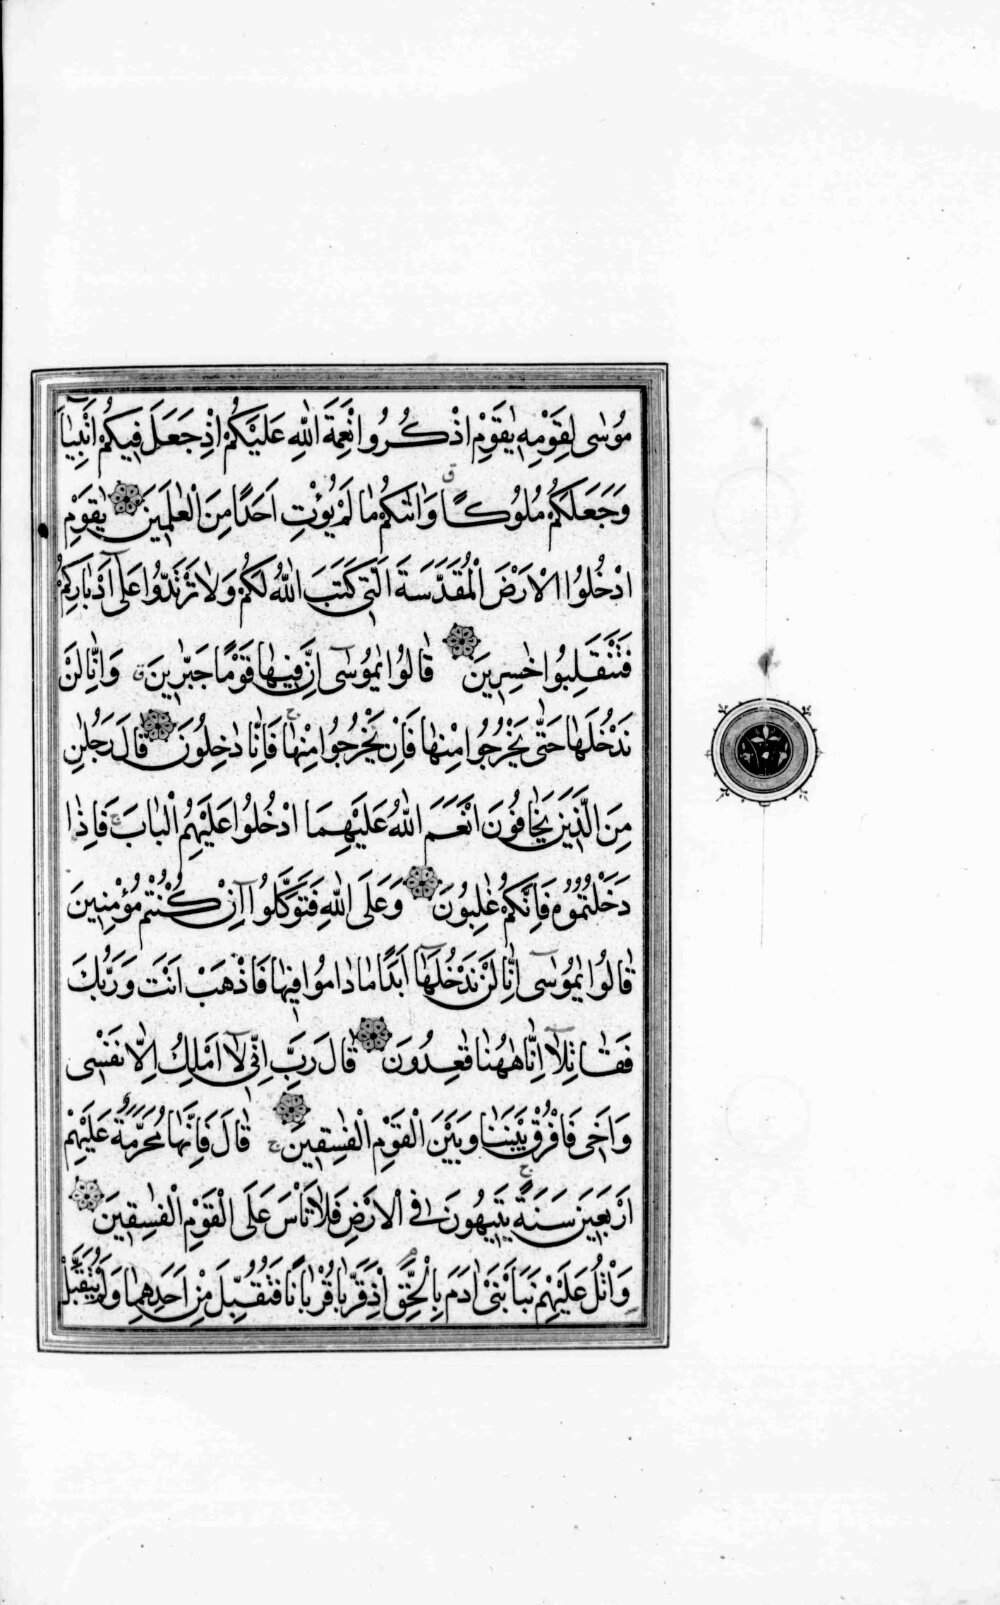 مُوسٰى لِقَوْمِهٖ يٰقَوْمِ اذْكُرُوا نِعْمَةَ اللّٰهِ عَلَيْكُمْ اِذْ جَعَلَ فِيكُمْ اَنْبِيَٓاءَ
وَجَعَلَكُمْ مُلُوكًا ق وَاٰتٰىكُمْ مَا لَمْ يُؤْتِ اَحَدًا مِنَ الْعٰلَمِينَ يٰقَوْمِ
ادْخُلُوا الْاَرْضَ الْمُقَدَّسَةَ الَّتِى كَتَبَ اللّٰهُ لَكُمْ وَلَا تَرْتَدُّوا عَلٰٓى اَدْبَارِكُمْ
فَتَنْقَلِبُوا خٰسِرِينَ قَالُوا يٰمُوسٰٓى اِنَّ فِيهَا قَوْمًا جَبَّارِينَ ق وَاِنَّا لَنْ
نَدْخُلَهَا حَتّٰى يَخْرُجُوا مِنْهَا ج فَاِنْ يَخْرُجُوا مِنْهَا فَاِنَّا دٰخِلُونَ قَالَ رَجُلٰنِ
مِنَ الَّذِينَ يَخَافُونَ اَنْعَمَ اللّٰهُ عَلَيْهِمَا ادْخُلُوا عَلَيْهِمُ الْبَابَ ج فَاِذَا
دَخَلْتُمُوهُ فَاِنَّكُمْ غٰلِبُونَ وَعَلَى اللّٰهِ فَتَوَكَّلُوٓا اِنْ كُنْتُمْ مُؤْمِنِينَ
قَالُوا يٰمُوسٰٓى اِنَّا لَنْ نَدْخُلَهَٓا اَبَدًا مَا دَامُوا فِيهَا فَاذْهَبْ اَنْتَ وَرَبُّكَ
فَقَاتِلَٓا اِنَّا هٰهُنَا قٰعِدُونَ قَالَ رَبِّ اِنِّى لَٓا اَمْلِكُ اِلَّا نَفْسِى
وَاَخِى فَافْرُقْ بَيْنَنَا وَبَيْنَ الْقَوْمِ الْفٰسِقِينَ قَالَ فَاِنَّهَا مُحَرَّمَةٌ عَلَيْهِمْ
اَرْبَعِينَ سَنَةً ج يَتِيهُونَ فِى الْاَرْضِ فَلَا تَأْسَ عَلَى الْقَوْمِ الْفٰسِقِينَ
وَاتْلُ عَلَيْهِمْ نَبَاَ ابْنَىْ اٰدَمَ بِالْحَقِّ م اِذْ قَرَّبَا قُرْبَانًا فَتُقُبِّلَ مِنْ اَحَدِهِمَا وَلَمْ يُتَقَبَّلْ